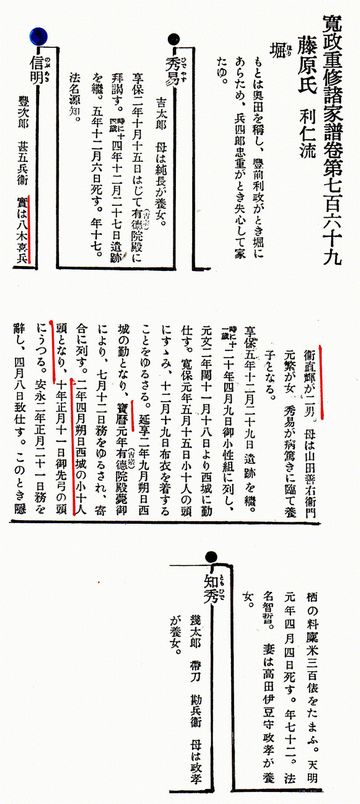 寬政重修諸家譜卷第七百六十九
藤原氏 利仁流
堀
ほり
もとは奥田を稱し、豐前利政がとき堀に
あらため、兵四郎忠重がとき失心して家
たゆ。
秀易
ひでやす
吉太郎 母は純長が養女。
享保二年十月十五日はじて有德院殿に
(吉宗)
拜謁す。時に十四歲 四年十二月二十七日遺跡
を繼。五年十二月六日死す。年十七。
法名源知。
信明
のぶあき
豐次郎 甚五兵衞 實は八木喜兵
衞直輝が二男。母は山田善右衞門
元繁が女。秀易が病篤きに臨て養
子となる。
享保五年十二月二十九日遺跡を繼。
時に十一歲 二十年四月九日御小性組に列し、
元文二年閏十一月十八日より西城に勤
仕す。寬保元年五月十五日小十人の頭
にすゝみ、十二月十九日布衣を着する
ことをゆるさる。延享二年九月朔日西
城の勤となり、寶曆元年有德院殿薨御
(吉宗)
により、七月十二日務をゆるされ、寄
合に列す。二年四月朔日西城の小十人
頭となり、十年正月十一日御先弓の頭
にうつる。安永二年正月二十一日務を
辭し、四月八日致仕す。このとき隱
栖の料廩米三百俵をたまふ。天明
元年四月四日死す。年七十二。法
名智哲。 妻は高田伊豆守政孝が養
女。
知秀
ともひで
幾太郎 帶刀 勘兵衞 母は政孝
が養女。